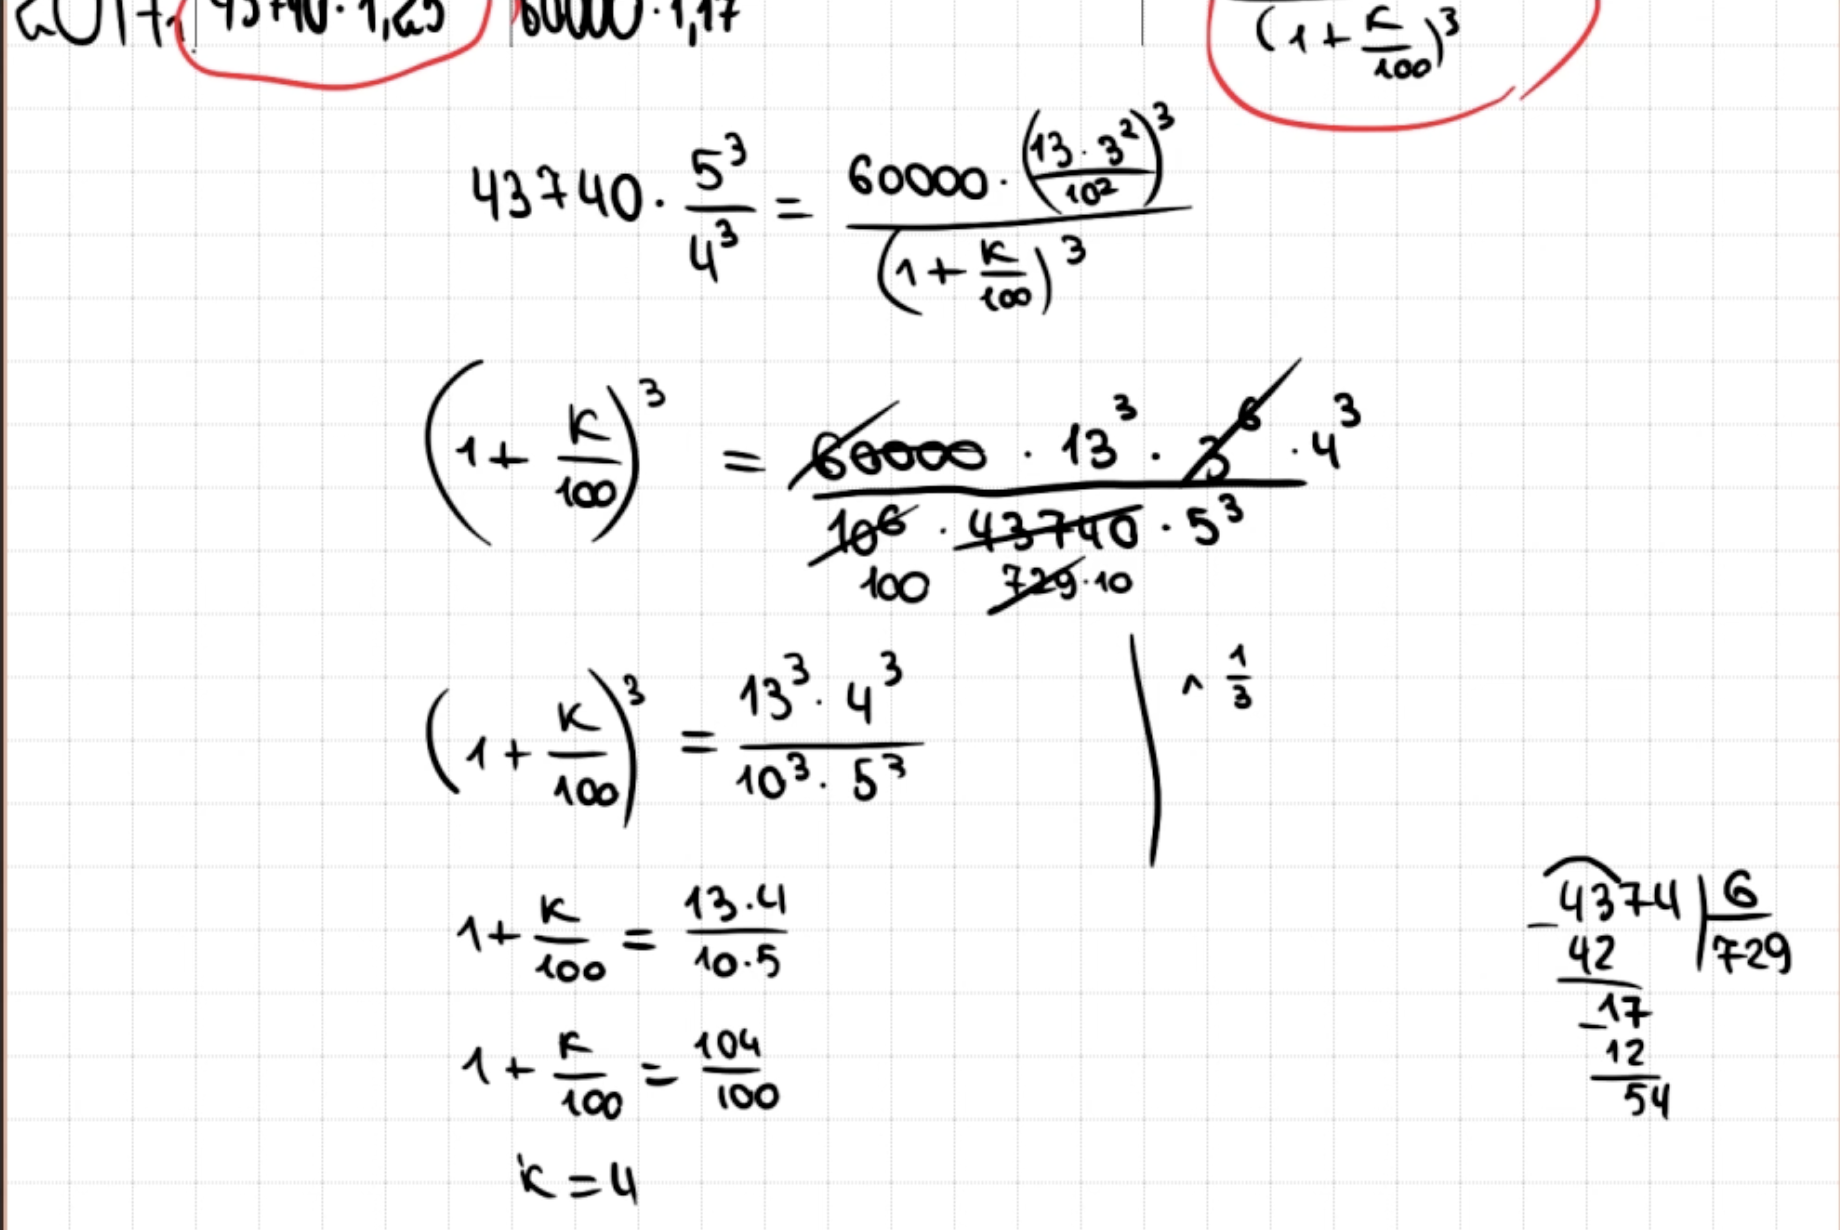 43740 · 1,25 60000 · 1,17
(1 + K/100)^3
43740 · 5^3/4^3 = 60000 · (13 · 3^2/10^2)^3 / (1 + K/100)^3
(1 + K/100)^3 = 60000 · 13^3 · 3^6 · 4^3 / 10^6 · 43740 · 5^3
100 729 · 10
(1 + K/100)^3 = 13^3 · 4^3 / 10^3 · 5^3 | ^ 1/3
1 + K/100 = 13 · 4 / 10 · 5
1 + K/100 = 104/100
K = 4
4374 | 6
- 42 | 729
17
- 12
54